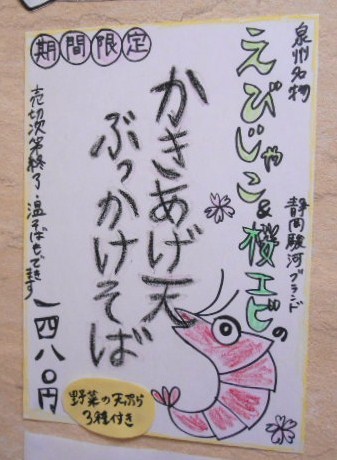 期間限定
泉州名物
えびじゃこ&桜エビの
静岡駿河ブランド
かきあげ天
ぶっかけそば
売切次第終了・温そばもできます
一四八〇円
野菜の天ぷら
3種付き